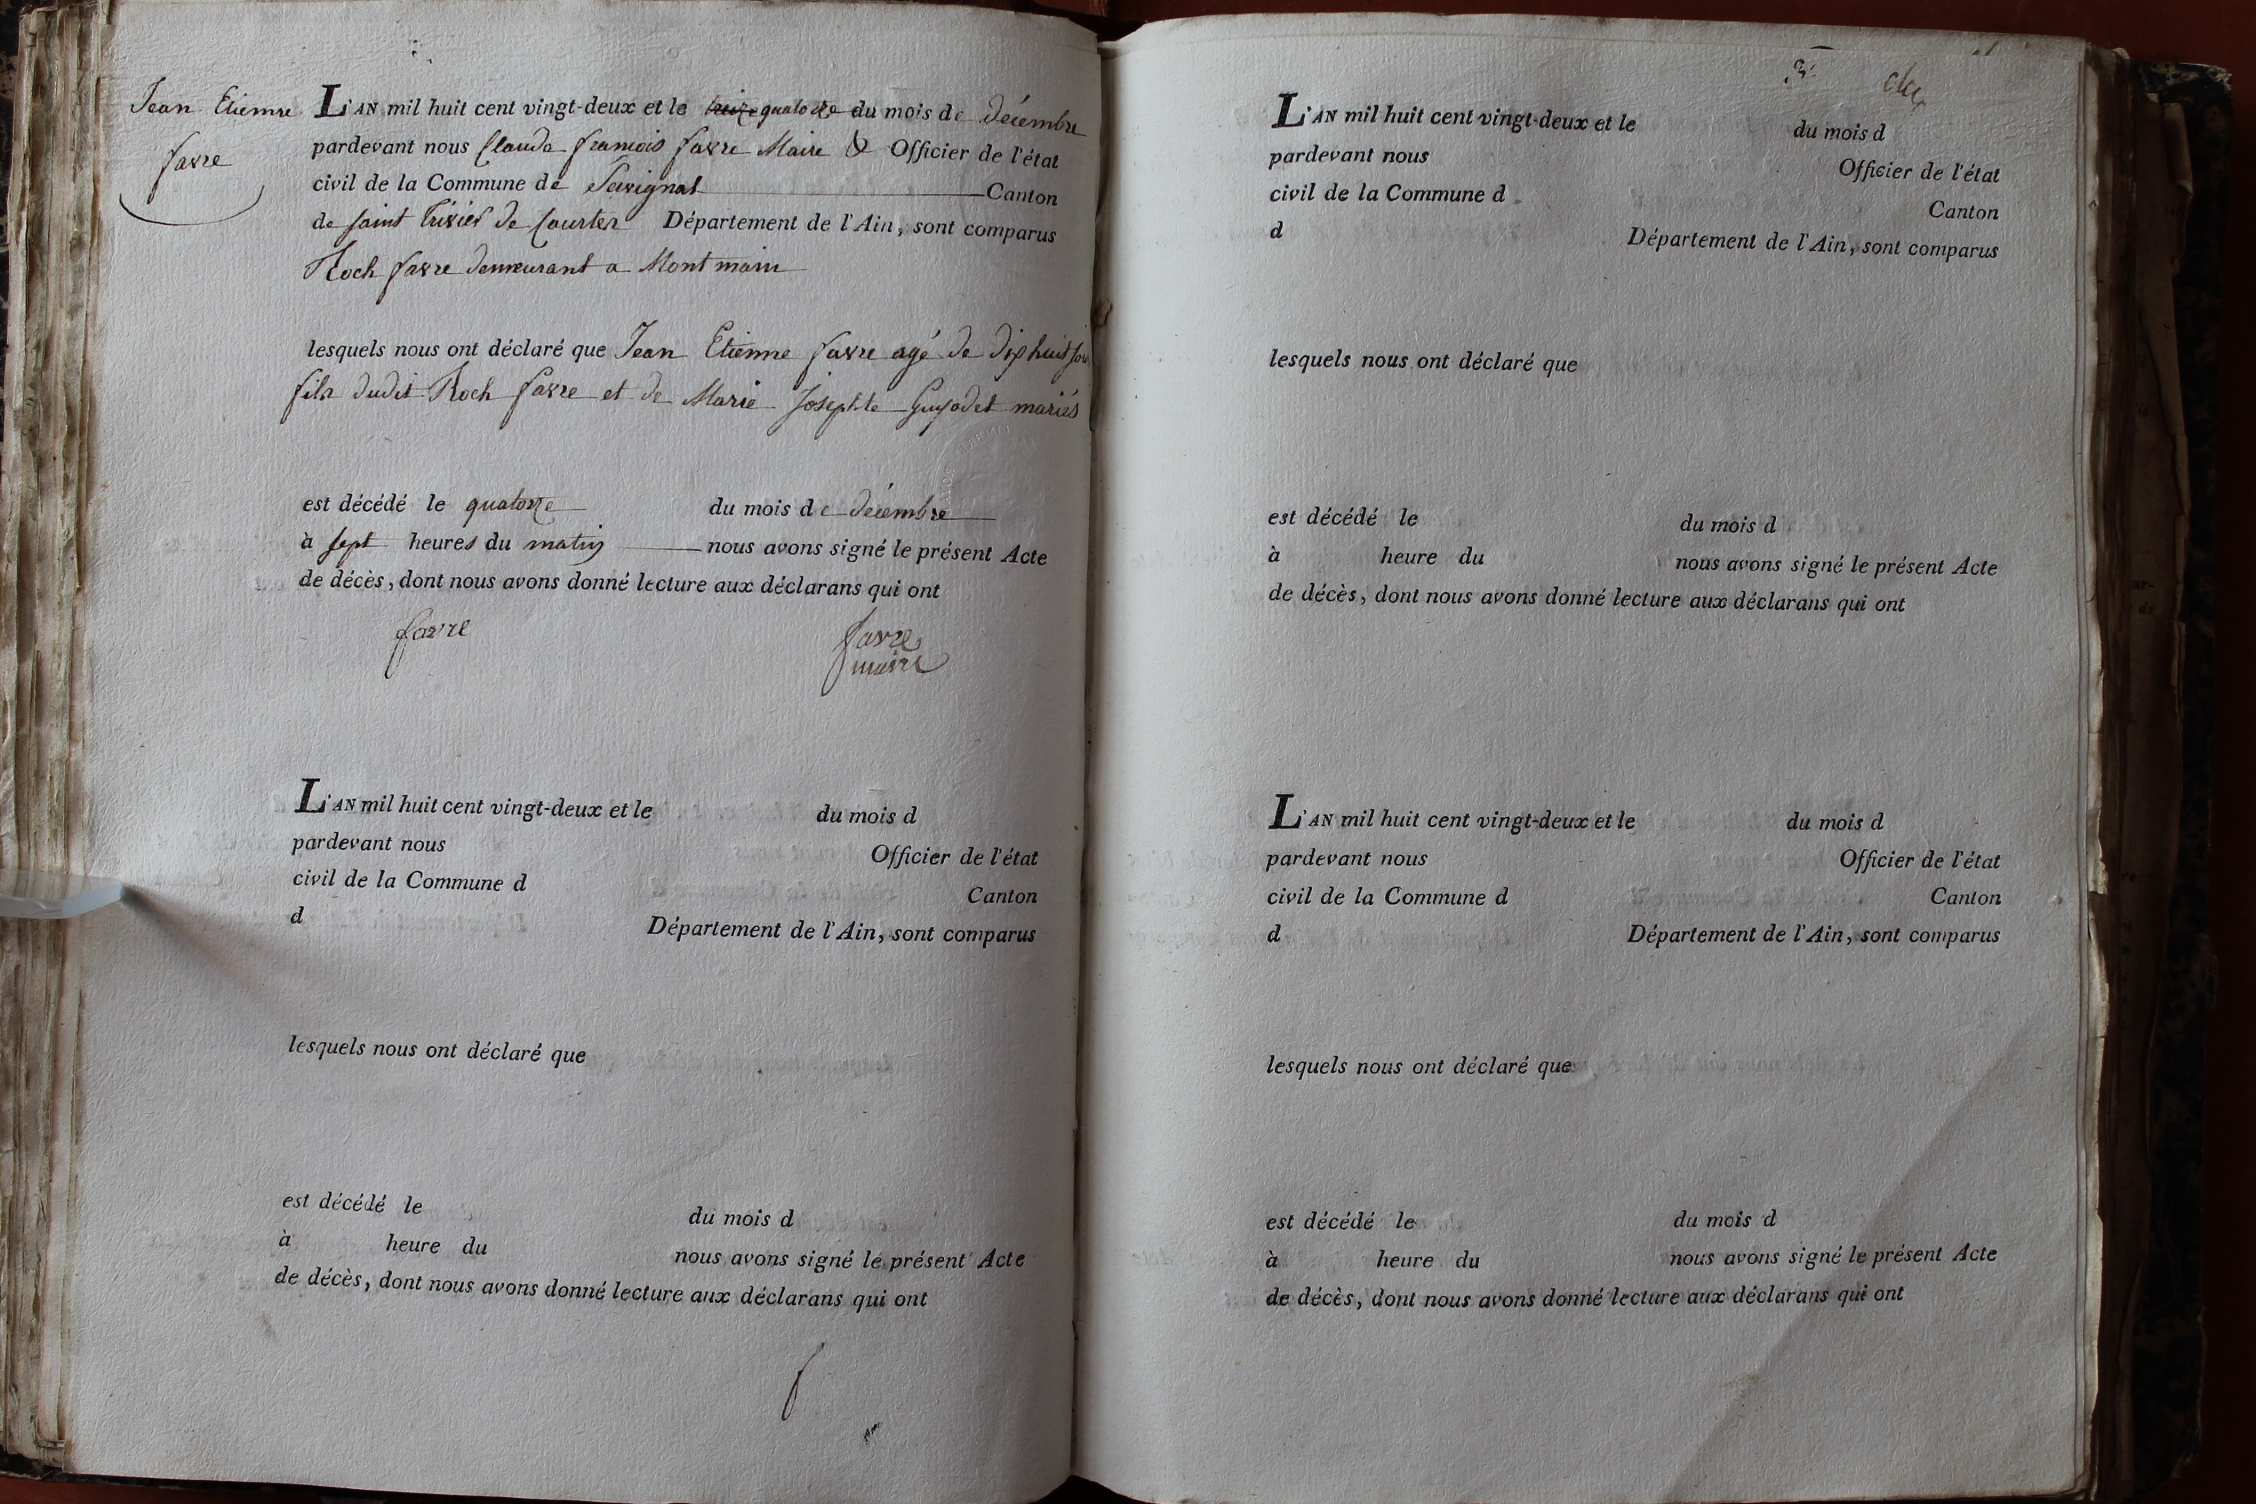 Jean Etienne
favre
L'AN mil huit cent vingt-deux et le treize quatorze du mois de décembre
pardevant nous Claude françois favre Maire & Officier de l'état
civil de la Commune de Servignat Canton
de saint Trivier de Courtes Département de l'Ain, sont comparus
Roch favre demeurant a Montmain
lesquels nous ont déclaré que Jean Etienne favre agé de dix huit jou
fils dudit Roch favre et de Marie Josephte Guyodet mariés
est décédé le quatorze du mois de décembre
à sept heures du matin nous avons signé le présent Acte
de décès, dont nous avons donné lecture aux déclarans qui ont
favre favre
maire
L'AN mil huit cent vingt-deux et le du mois d
pardevant nous Officier de l'état
civil de la Commune d Canton
d Département de l'Ain, sont comparus
lesquels nous ont déclaré que
est décédé le du mois d
à heure du nous avons signé le présent Acte
de décès, dont nous avons donné lecture aux déclarans qui ont
L'AN mil huit cent vingt-deux et le du mois d
pardevant nous Officier de l'état
civil de la Commune d Canton
d Département de l'Ain, sont comparus
lesquels nous ont déclaré que
est décédé le du mois d
à heure du nous avons signé le présent Acte
de décès, dont nous avons donné lecture aux déclarans qui ont
L'AN mil huit cent vingt-deux et le du mois d
pardevant nous Officier de l'état
civil de la Commune d Canton
d Département de l'Ain, sont comparus
lesquels nous ont déclaré que
est décédé le du mois d
à heure du nous avons signé le présent Acte
de décès, dont nous avons donné lecture aux déclarans qui ont